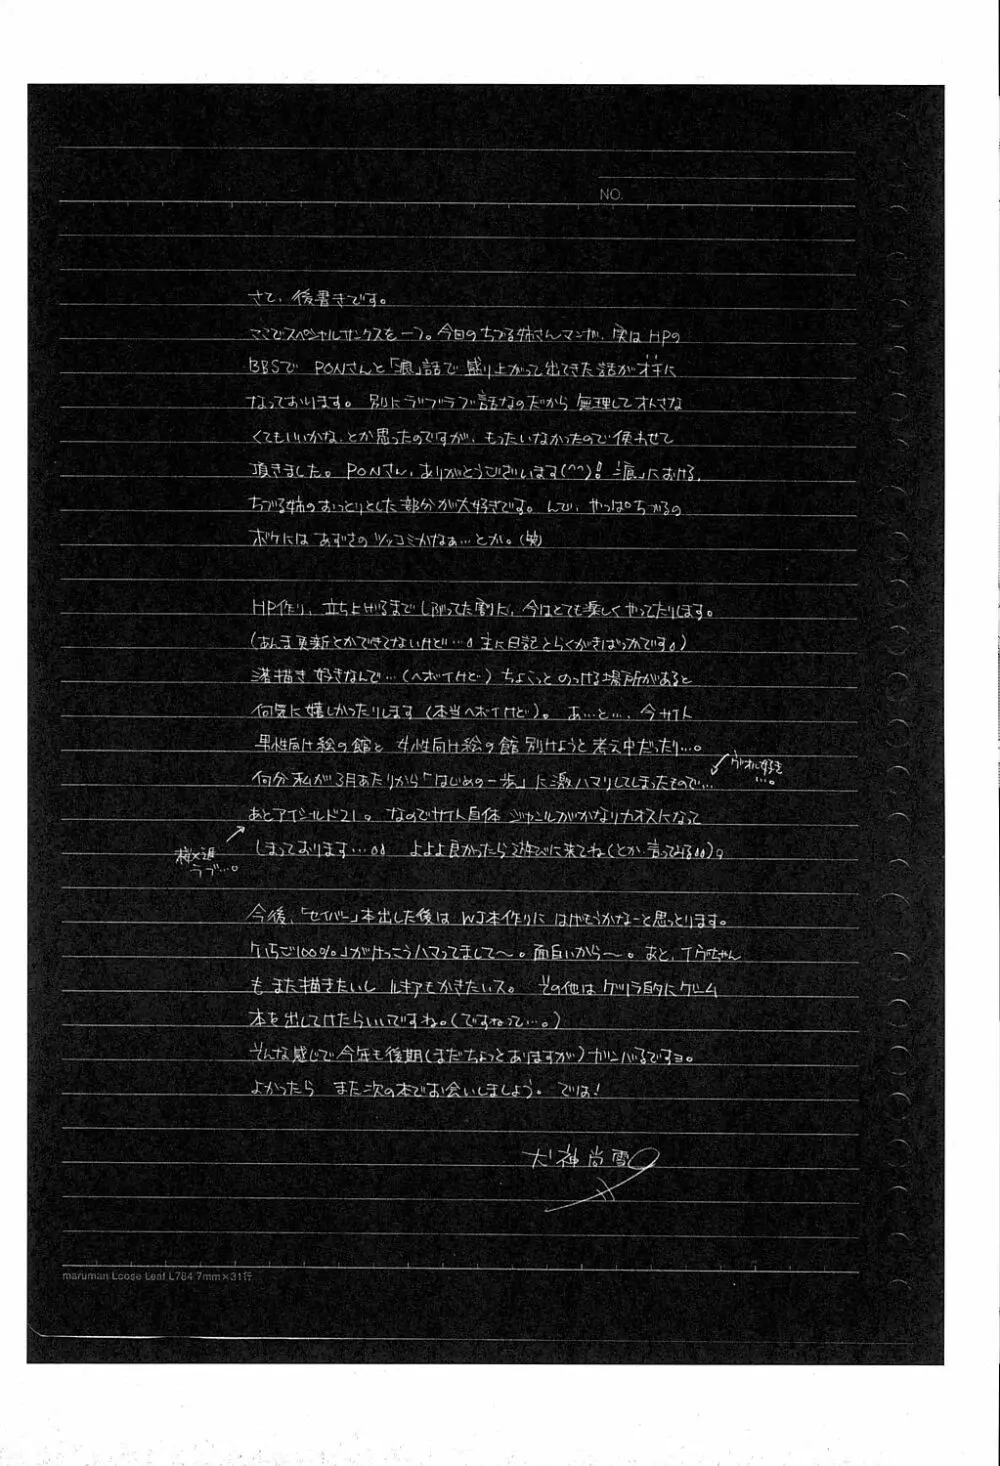 NO.
さて、後書きです。
ここでスペシャルサンクスを一つ。今回のちづる姉さんマンガ、実はHPの
BBSで PONさんと「痕」話で盛り上がって出てきた話がオチに
なっております。別にラブラブ話なのだから無理してオトさな
くてもいいかな、とか思ったのですが、もったいなかったので使わせて
頂きました。PONさん、ありがとうございます(^^)!「痕」における、
ちづる姉のおっとりとした部分が大好きです。んで、やっぱちづるの
ボケにはあずさのツッコミかなぁ…とか。(笑)
HP作り、立ち上げるまでしぶってた割に、今はとても楽しくやってたりします。
(あんま更新とかできてないけど…。主に日記とらくがきばっかです。)
落描き好きなんで…(ヘボイけど)ちょこっとのっける場所があると
何気に嬉しかったりします(本当ヘボイけど)。あ…と…、今サイト
男性向け絵の館と女性向け絵の館別けようと考え中だったり…。
何分私が3月あたりから「はじめの一歩」に激ハマリしてしまったもので…
好き…。
あとアイシールド21。なのでサイト自体ジャンルがかなりカオスになって
ラブ…。
しまっております…。 よよよ良かったら遊びに来てね(とか言ってみる)。
今後、「セイバー」本出した後はWJ本作りにはげもうかなーと思っとります。
「いちご100%」がけっこうハマってまして〜。面白いから〜。あと、イヴちゃん
もまた描きたいし ルキアもかきたいス。 その他はゲリラ的にゲーム
本を出してけたらいいですね。(ですねって…。)
そんな感じで今年も後期(まだちょっとありますが)ガンバるですョ。
よかったら また次の本でお会いしましょう。では!
犬神尚雪
maruman Loose Leaf L784 7mm×31行